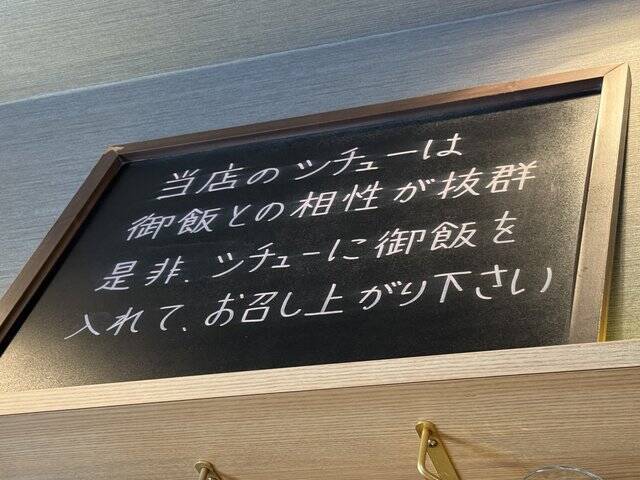 当店のシチューは
御飯との相性が抜群
是非、シチューに御飯を
入れて、お召し上がり下さい